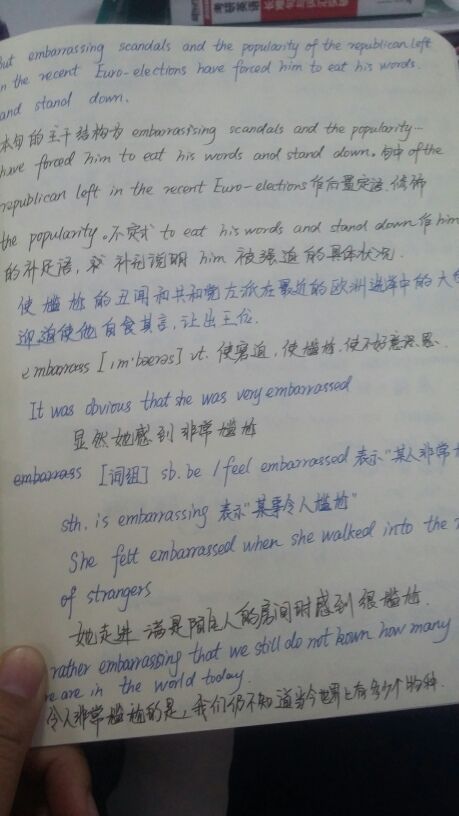 考研英语
but embarrassing scandals and the popularity of the republican left
in the recent Euro-elections have forced him to eat his words.
and stand down.
本句的主干结构为 embarrasising scandals and the popularity...
have forced him to eat his words and stand down. 句中 of the
republican left in the recent Euro-elections 作后置定语, 修饰
the popularity。不定式 to eat his words and stand down 作 him
的补足语, 补别说明 him 被强迫的具体状况.
使尴尬的丑闻和共和党左派在最近的欧洲选举中的大
迎迫使他自食其言, 让出王位.
embarrass [ɪm'bærəs] vt. 使窘迫, 使尴尬, 使不好意思
It was obvious that she was very embarrassed
显然她感到非常尴尬
embarrass [词组] sb. be / feel embarrassed 表示"某人非常
sth. is embarrassing 表示"某事令人尴尬"
She felt embarrassed when she walked into the
of strangers
她走进满是陌生人的房间时感到很尴尬.
rather embarrassing that we still do not kown how many
are in the world today.
令人非常尴尬的是, 我们仍不知道当今世界上有多少个物种.